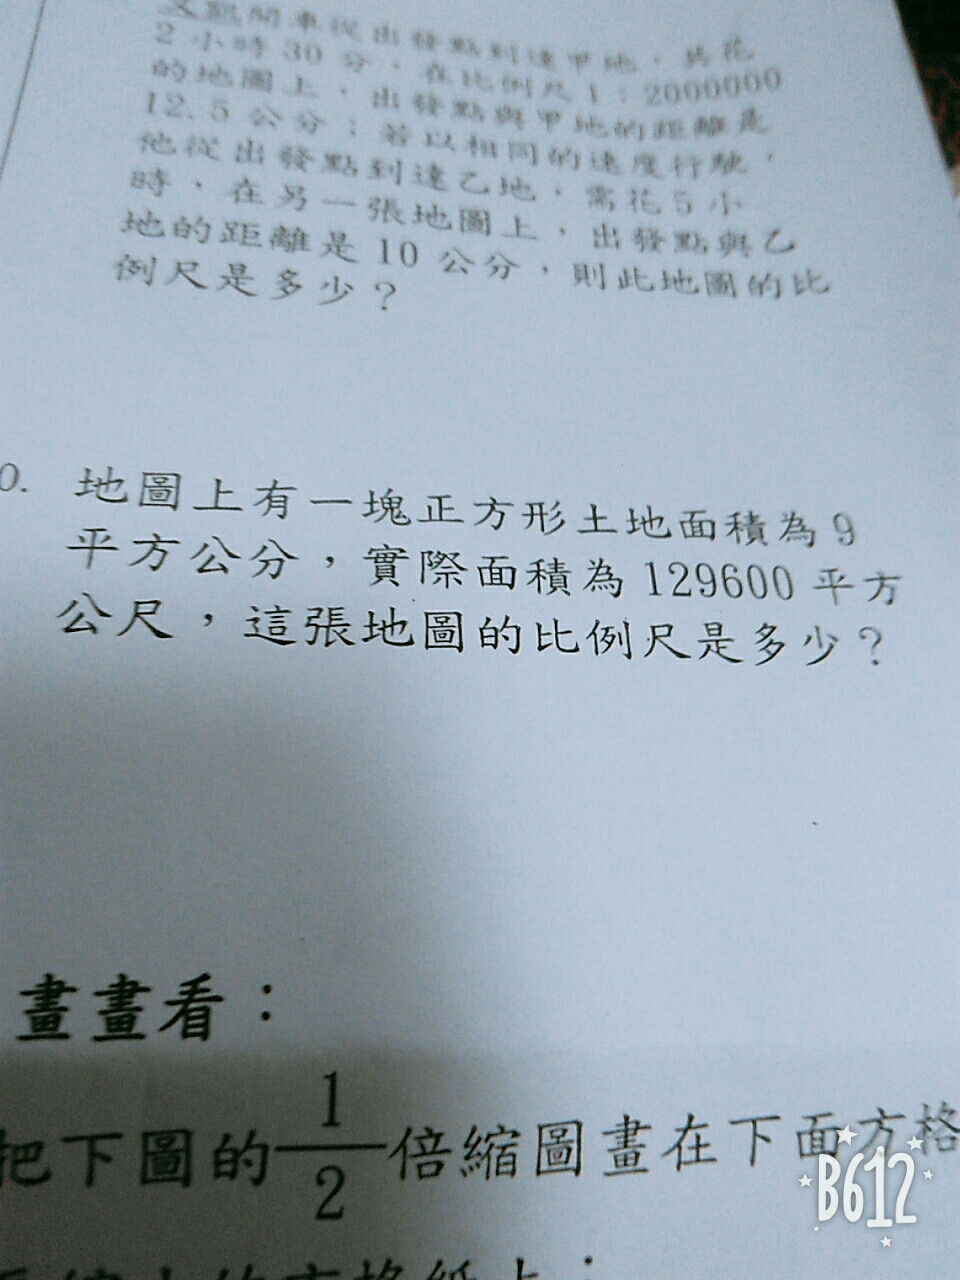 文凱開車從出發點到達甲地，共花
2 小時 30 分，在比例尺 1：2000000
的地圖上，出發點與甲地的距離是
12.5 公分；若以相同的速度行駛，
他從出發點到達乙地，需花 5 小
時，在另一張地圖上，出發點與乙
地的距離是 10 公分，則此地圖的比
例尺是多少？
0. 地圖上有一塊正方形土地面積為 9
平方公分，實際面積為 129600 平方
公尺，這張地圖的比例尺是多少？
畫畫看：
把下圖的 1/2 倍縮圖畫在下面方格
B612